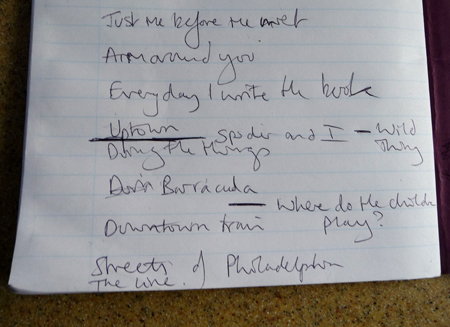 Just me before the meet
Arm around you
Everyday I write the book
Uptown spoder and I - Wild
Doing the things Thing
Barracuda
where do the childre
Downtown train play?
Streets of Philadelphia
The Line.